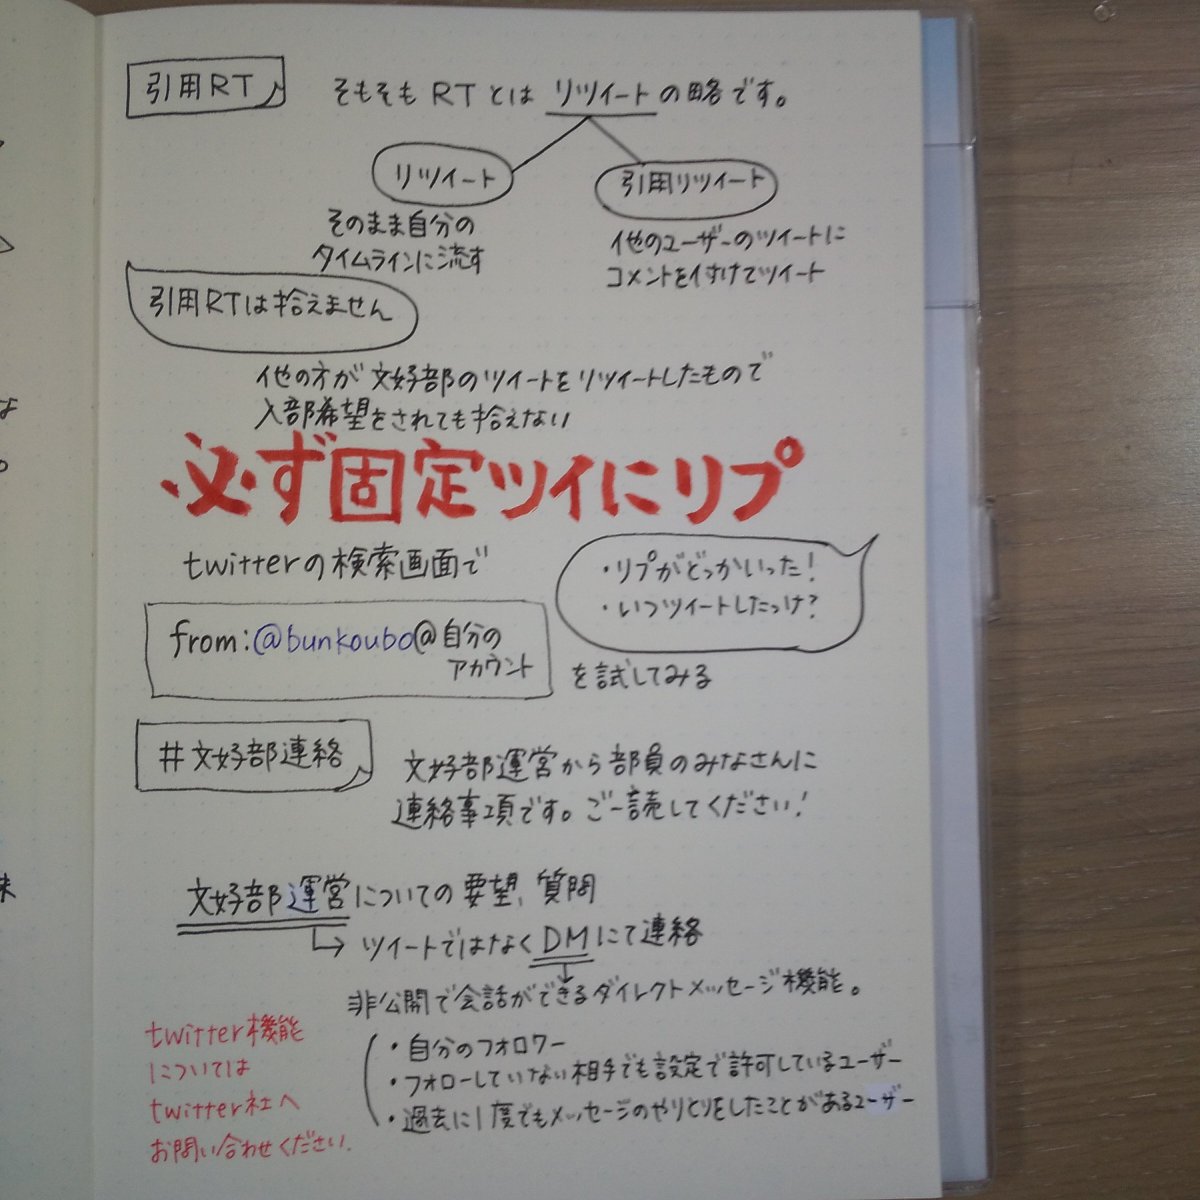 引用RT
そもそもRTとはリツイートの略です。
リツイート
引用リツイート
そのまま自分の
タイムラインに流す
他のユーザーのツイートに
コメントを付けてツイート
引用RTは拾えません
他の方が文好部のツイートをリツイートしたもので
入部希望をされても拾えない
必ず固定ツイにリプ
twitterの検索画面で
・リプがどっかいった!
・いつツイートしたっけ?
from:@bunkoubo@自分の
アカウント
を試してみる
#文好部連絡
文好部運営から部員のみなさんに
連絡事項です。ご一読してください!
文好部運営についての要望、質問
↳ツイートではなくDMにて連絡
非公開で会話ができるダイレクトメッセージ機能。
・自分のフォロワー
・フォローしていない相手でも設定で許可しているユーザー
・過去に1度でもメッセージのやりとりをしたことがあるユーザー
twitter機能
については
twitter社へ
お問い合わせください.